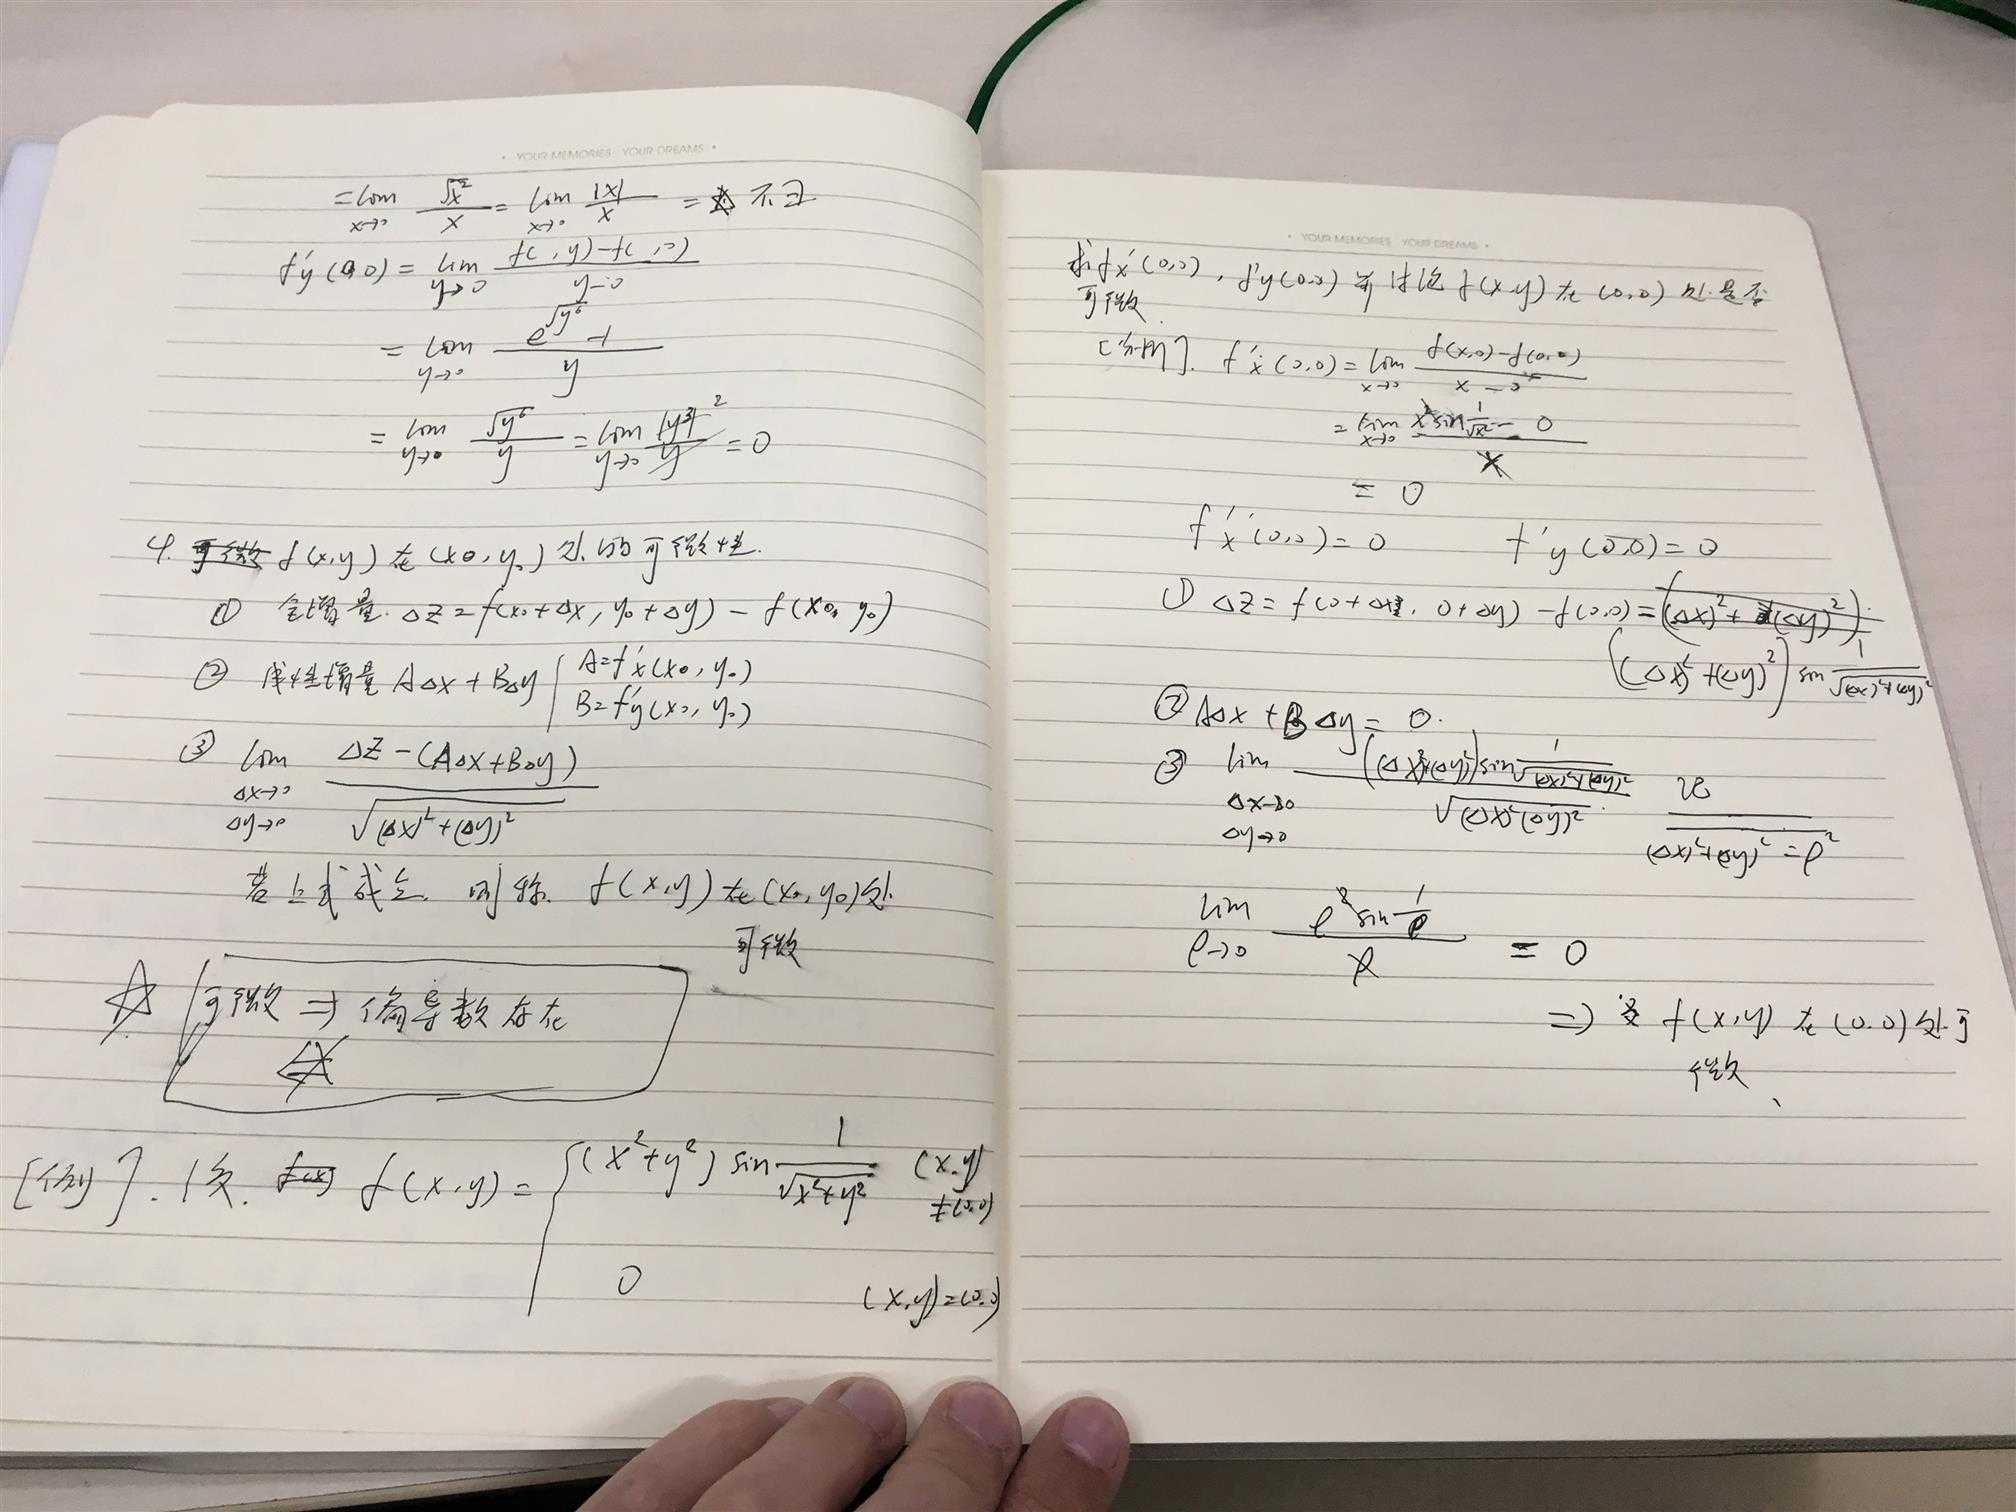 · YOUR MEMORIES YOUR DREAMS ·
= lim x→0 √x² / x = lim x→0 |x| / x = 不∃
f'y(0,0) = lim y→0 f( ,y)-f( ,0) / y-0
= lim y→0 e^√y⁶ -1 / y
= lim y→0 √y⁶ / y = lim y→0 |y³|² / y = 0
4. 可微 f(x,y) 在 (x0,y0) 处的可微性.
① 全增量. Δz = f(x0+Δx, y0+Δy) - f(x0, y0)
② 线性增量 AΔx + BΔy | A=f'x(x0, y0)
B=f'y(x0, y0)
③ lim Δx→0 Δy→0 Δz-(AΔx+BΔy) / √(Δx)²+(Δy)²
若上式成立. 则称. f(x,y) 在 (x0, y0) 处
可微
☆ 可微 ⇒ 偏导数存在
⇍
[例]. 设. f(x) f(x,y) = { (x²+y²) sin 1/√x²+y² (x,y)
≠(0,0)
0 (x,y)=(0,0)
· YOUR MEMORIES YOUR DREAMS ·
求f'x(0,0), f'y(0,0) 并讨论 f(x,y) 在 (0,0) 处是否
可微.
[分析]. f'x(0,0) = lim x→0 f(x,0)-f(0,0) / x-0
= lim x→0 x² sin 1/√x² - 0 / x
= 0
f'x(0,0)=0 f'y(0,0)=0
① Δz = f(0+Δx, 0+Δy) - f(0,0) = ((Δx)²+(Δy)²)
((Δx)²+(Δy)²) sin 1/√(Δx)²+(Δy)²
② AΔx + BΔy = 0.
③ lim Δx→0 Δy→0 ((Δx)²+(Δy)²) sin 1/√(Δx)²+(Δy)² / √(Δx)²(Δy)² 设 (Δx)²+(Δy)²=ρ²
lim ρ→0 ρ² sin 1/ρ / ρ = 0
⇒ f(x,y) 在 (0.0) 处可
微、